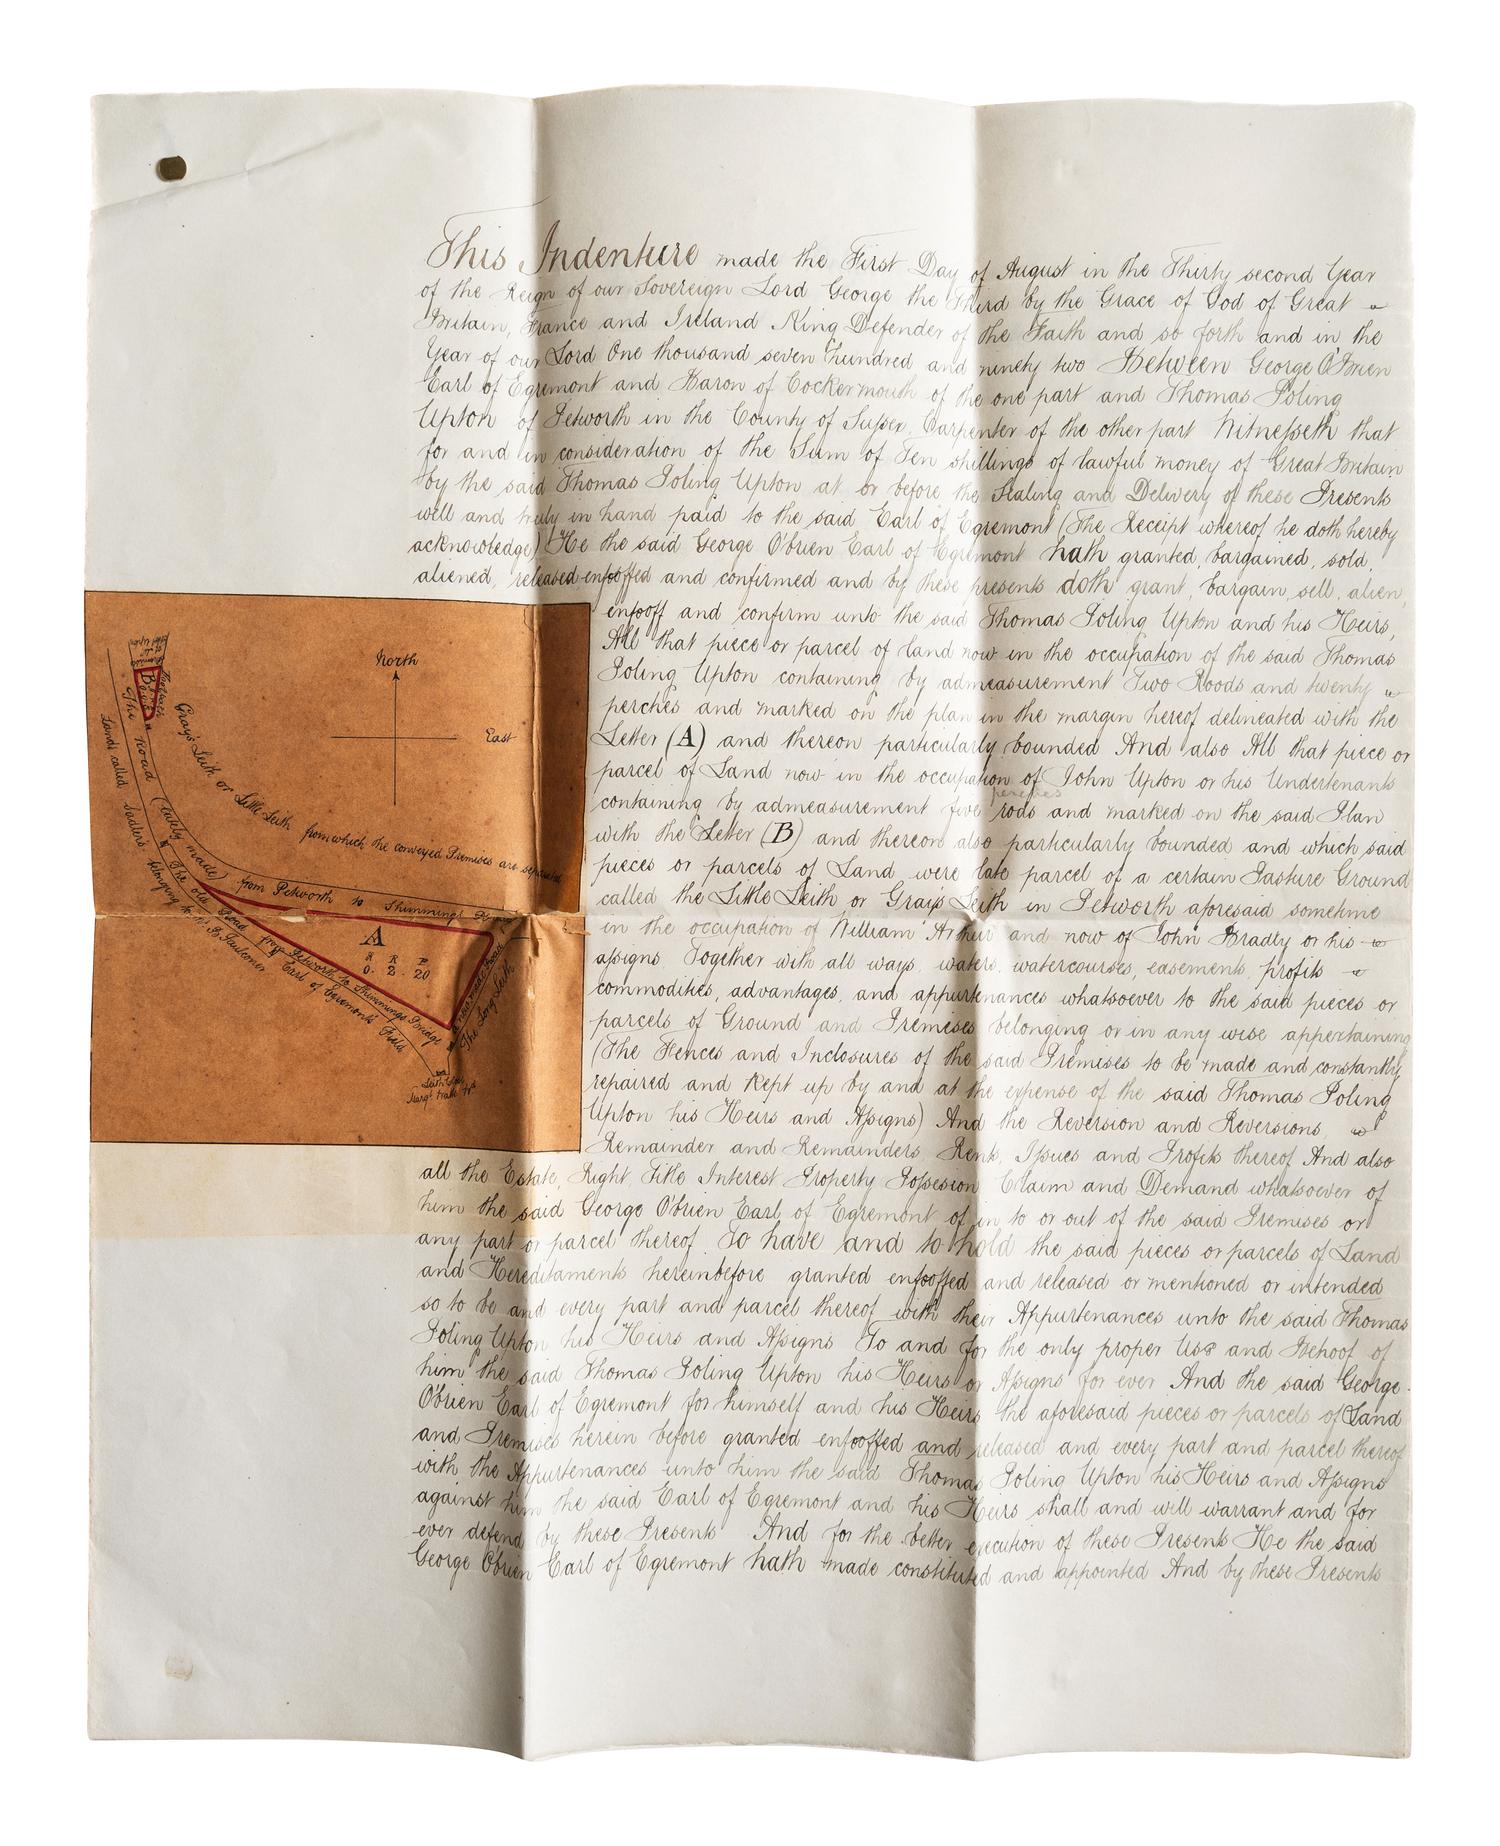 This Indenture made the First Day of August in the Thirty second Year
of the Reign of our Sovereign Lord George the Third by the Grace of God of Great
Britain, France and Ireland King Defender of the Faith and so forth and in the
Year of our Lord One thousand seven hundred and ninety two Between George O'Brien
Earl of Egremont and Baron of Cockermouth of the one part and Thomas Poling
Upton of Petworth in the County of Sussex Carpenter of the other part Witnesseth that
for and in consideration of the Sum of Ten shillings of lawful money of Great Britain
by the said Thomas Poling Upton at or before the Sealing and Delivery of these Presents
well and truly in hand paid to the said Earl of Egremont (The Receipt whereof he doth hereby
acknowledge) He the said George O'brien Earl of Egremont hath granted, bargained, sold,
aliened, released enfooffed and confirmed and by these presents doth grant, bargain, sell, alien,
enfooff and confirm unto the said Thomas Poling Upton and his Heirs,
All that piece or parcel of land now in the occupation of the said Thomas
Poling Upton containing by admeasurement Two Roods and twenty
perches and marked on the plan in the margin hereof delineated with the
Letter (A) and thereon particularly bounded And also All that piece or
parcel of Land now in the occupation of John Upton or his Undertenants
perches
containing by admeasurement five rods and marked on the said Plan
with the Letter (B) and thereon also particularly bounded and which said
pieces or parcels of Land were late parcel of a certain Pasture Ground
called the Little Leith or Gray's Leith in Petworth aforesaid sometime
in the occupation of William Arthur and now of John Bradly or his
assigns. Together with all ways, waters, watercourses, easements, profits
commodities, advantages, and appurtenances whatsoever to the said pieces or
parcels of Ground and Premises belonging or in any wise appertaining
(The Fences and Inclosures of the said Premises to be made and constantly
repaired and kept up by and at the expense of the said Thomas Poling
Upton his Heirs and Assigns) And the Reversion and Reversions,
Remainder and Remainders, Rents, Issues and Profits thereof And also
all the Estate, Right, Title Interest Property Possesion Claim and Demand whatsoever of
him the said George O'Brien Earl of Egremont of in to or out of the said Premises or
any part or parcel thereof. To have and to hold the said pieces or parcels of Land
and Hereditaments hereinbefore granted enfooffed and released or mentioned or intended
so to be and every part and parcel thereof with their Appurtenances unto the said Thomas
Poling Upton his Heirs and Assigns To and for the only proper Use and Behoof of
him the said Thomas Poling Upton his Heirs or Assigns for ever And the said George
O'brien Earl of Egremont for himself and his Heirs the aforesaid pieces or parcels of Land
and Premises herein before granted enfooffed and released and every part and parcel thereof
with the Appurtenances unto him the said Thomas Poling Upton his Heirs and Assigns
against him the said Earl of Egremont and his Heirs shall and will warrant and for
ever defend by these Presents And for the better execution of these Presents He the said
George Obrien Earl of Egremont hath made constituted and appointed And by these Presents
North
East
B
Gray's Leith or Little Leith from which the conveyed Premises are separated
The Road (lately made) from Petworth to Shimmings
Lands called Sadlers belonging to
The old Road from Petworth to Shimmings Bridge
Earl of Egremont's Field
A
A R P
0 - 2 - 20
The Long Leith